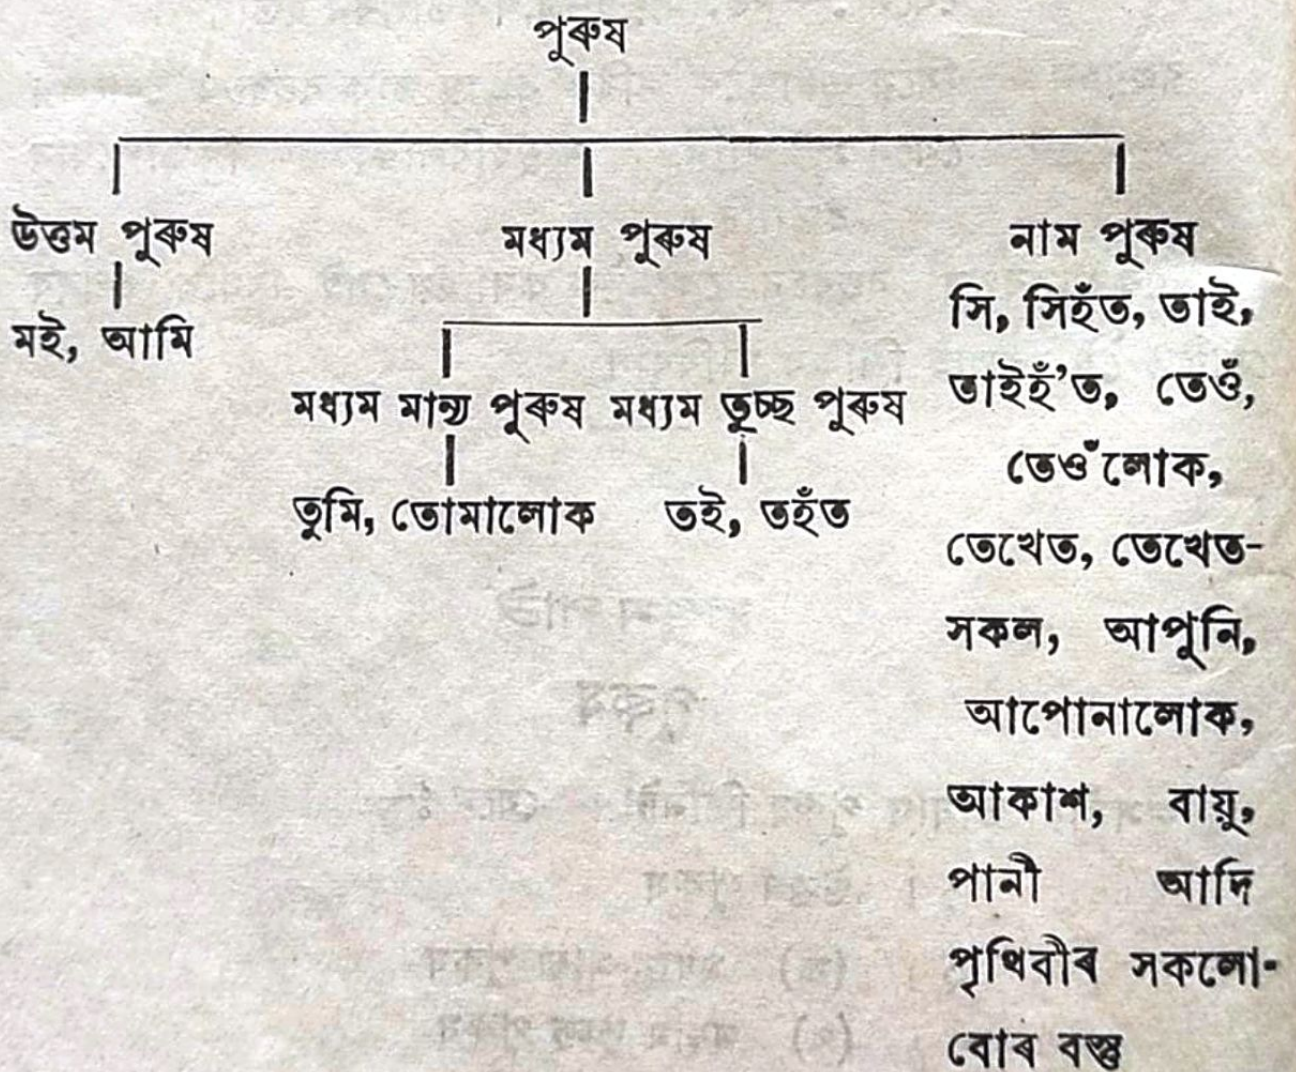 পুৰুষ
উত্তম পুৰুষ
মই, আমি
মধ্যম পুৰুষ
মধ্যম মান্য পুৰুষ
তুমি, তোমালোক
মধ্যম তুচ্ছ পুৰুষ
তই, তহঁত
নাম পুৰুষ
সি, সিহঁত, তাই,
তাইহঁ’ত, তেওঁ,
তেওঁলোক,
তেখেত, তেখেত-
সকল, আপুনি,
আপোনালোক,
আকাশ, বায়ু,
পানী আদি
পৃথিবীৰ সকলো-
বোৰ বস্তু